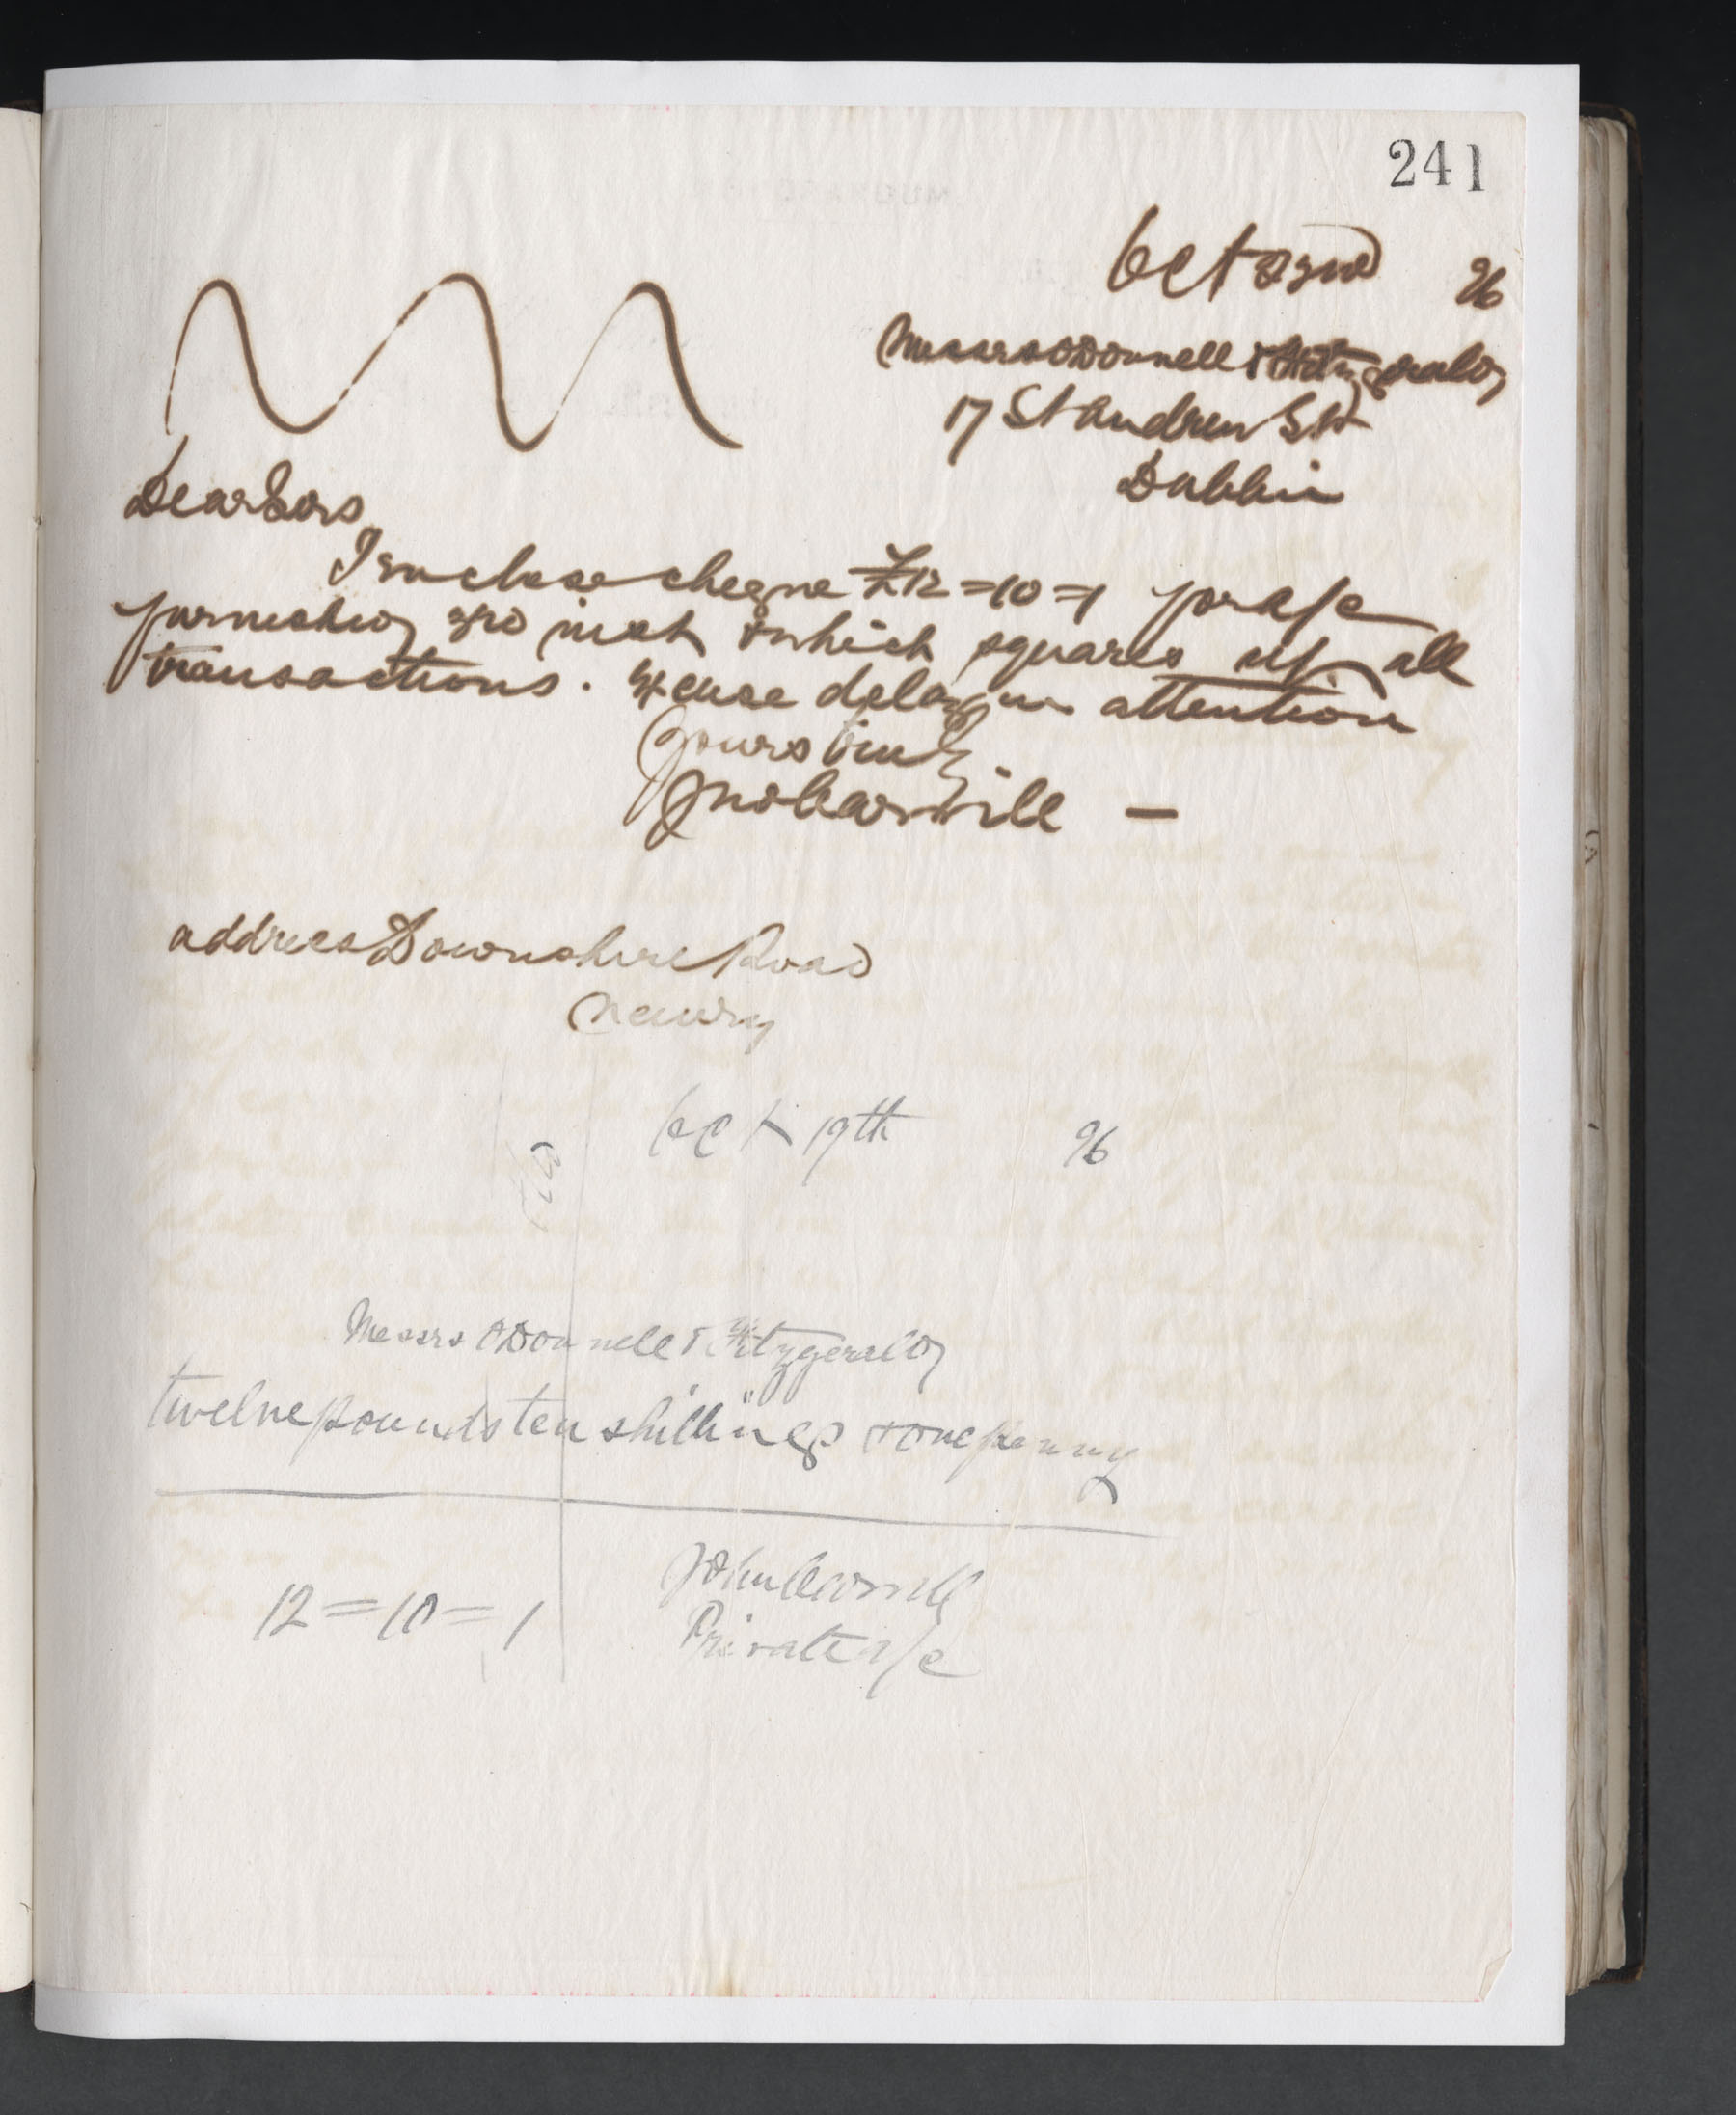 241
Oct 23rd 96
Messrs O'Donnell & Fitzgerald
17 St Andrew St
Dublin
Dear Sirs
I enclose cheque £12=10=1 for a/c
furnished inst & which squares up all
transactions. Excuse delay in attention
Yours truly
Jno Carvill —
address Downshire Road
Newry
Oct 19th 96
Messrs O'Donnell & Fitzgerald
twelve pounds ten shillings & one penny
12=10=1
John Carvill
Private a/c